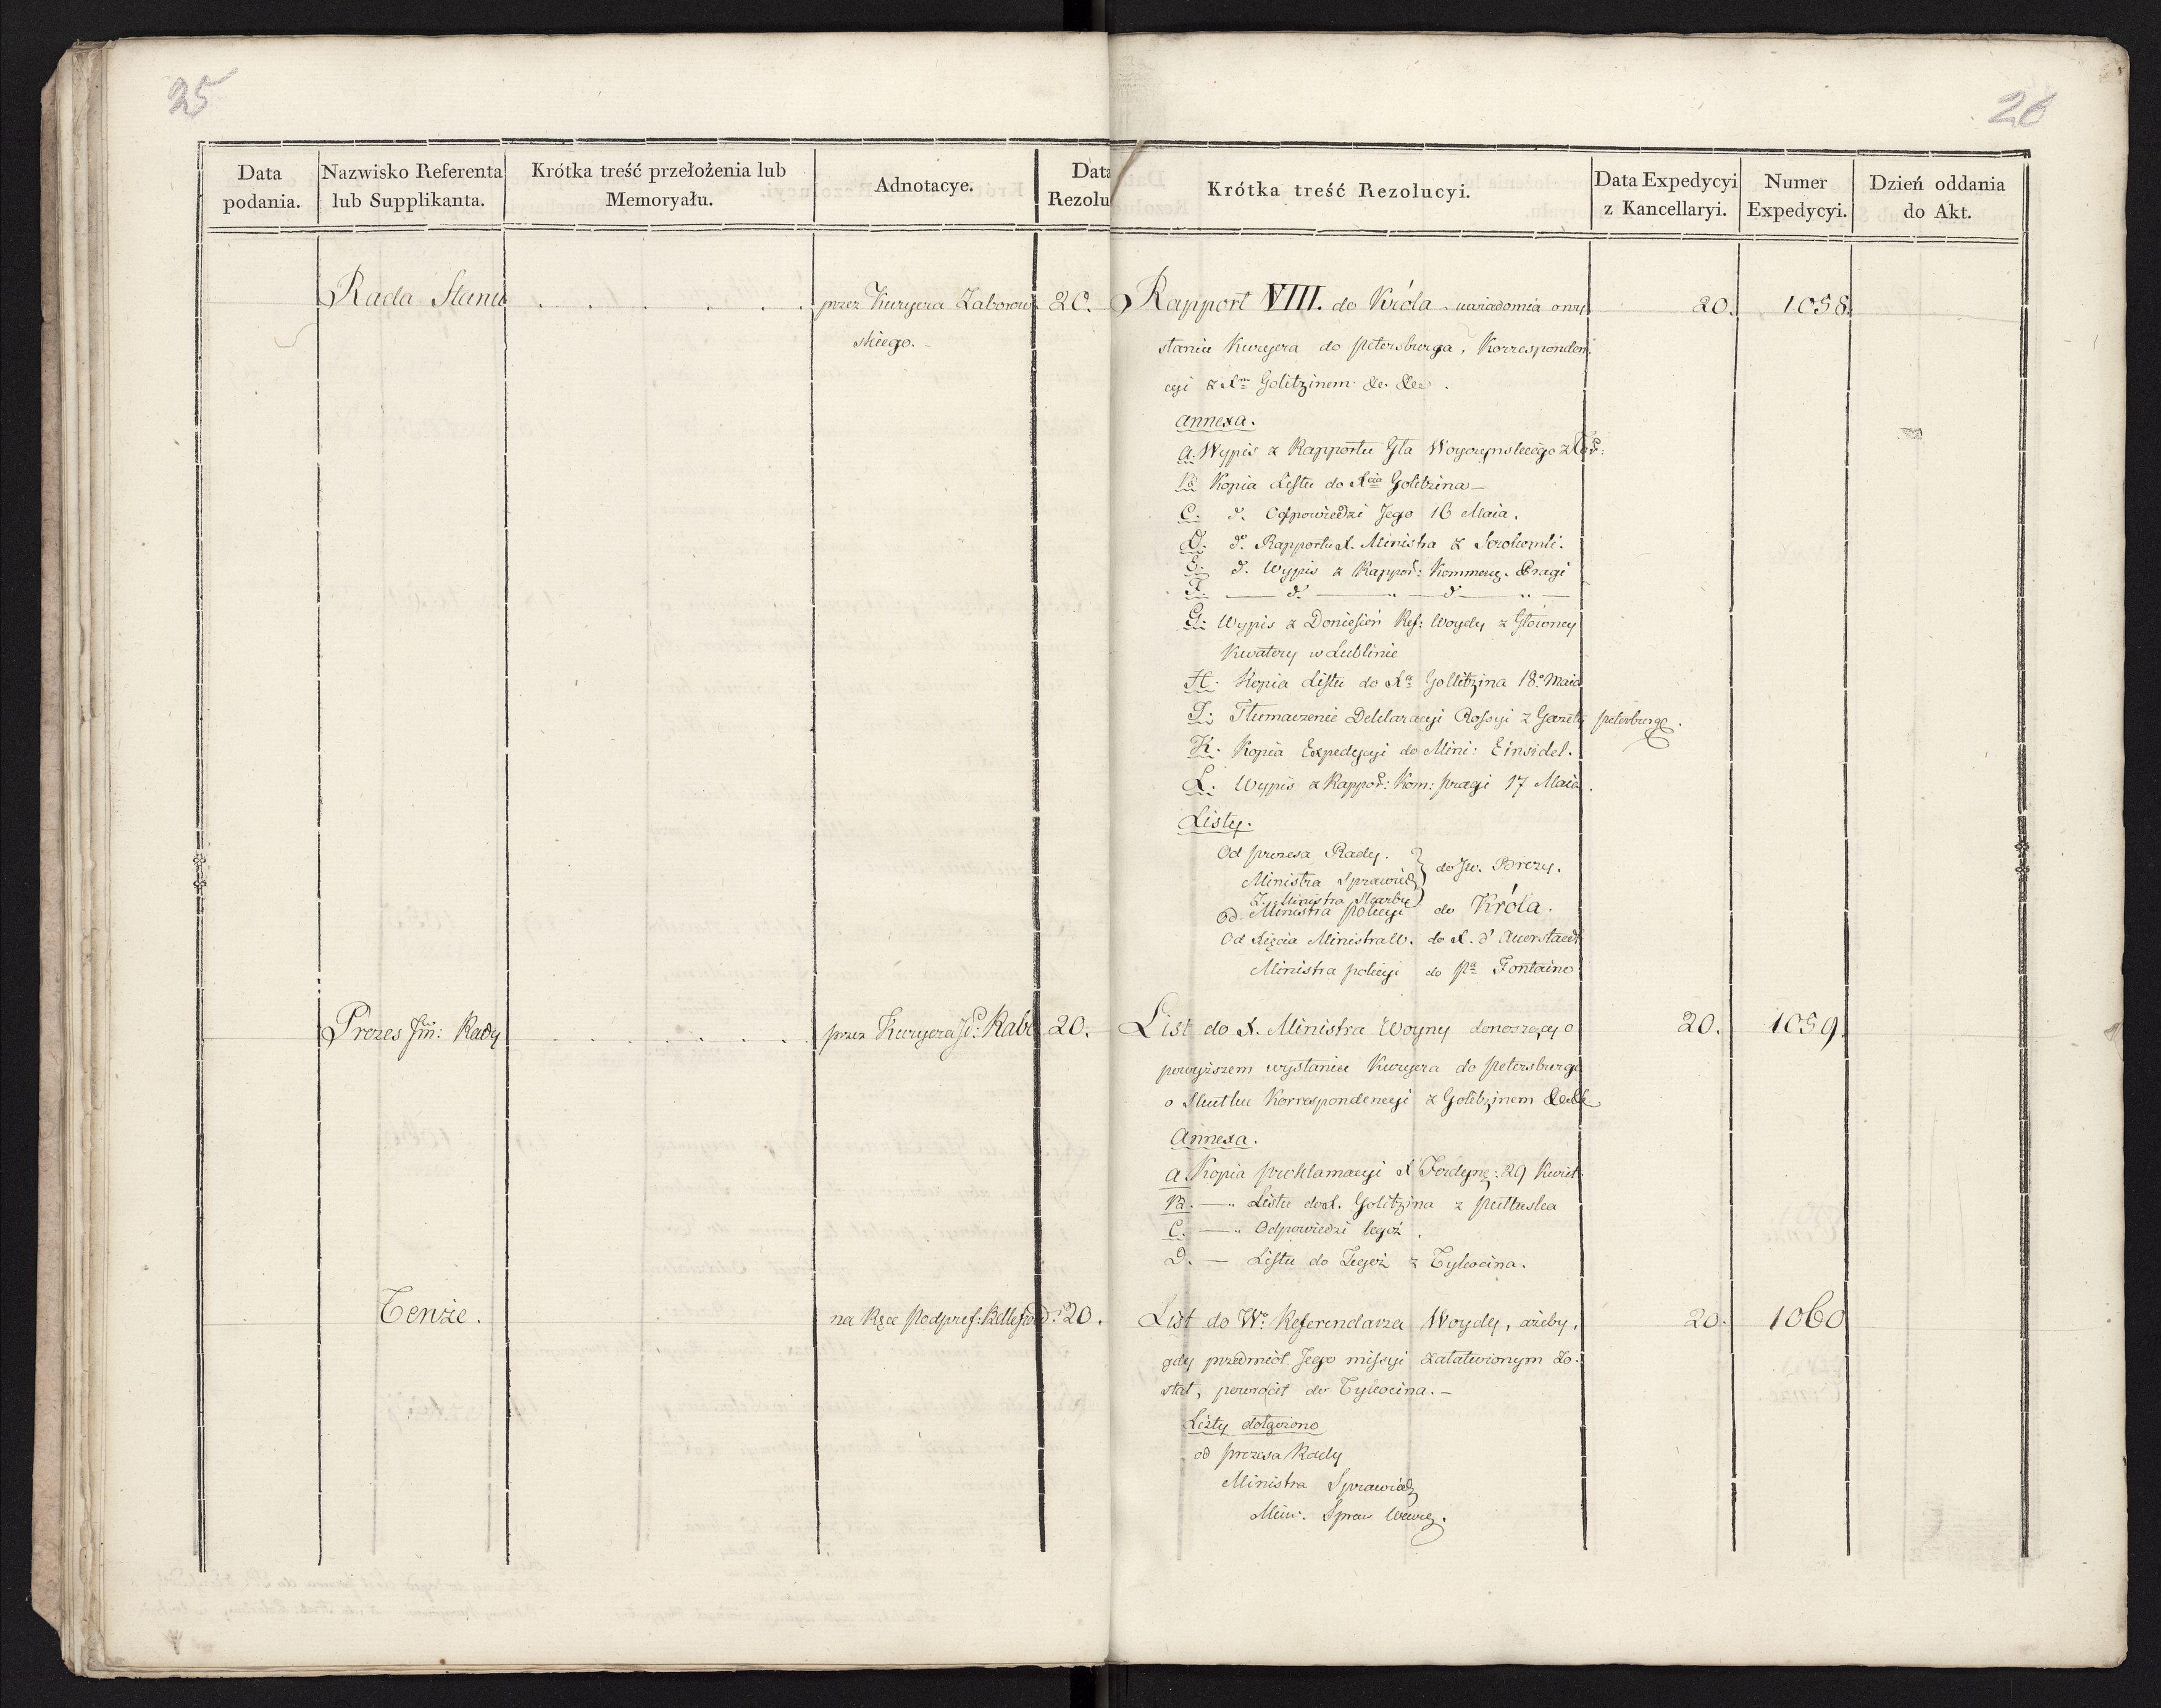 25
26
Data podania.
Nazwisko Referenta lub Supplikanta.
Krótka treść przełożenia lub Memoryału.
Adnotacye.
Data Rezolu
Krótka treść Rezolucyi.
Data Expedycyi z Kancellaryi.
Numer Expedycyi.
Dzień oddania do Akt.
Rada Stanu
przez Kuryera Zaborow
skiego. -
20.
Rapport VIII. do Króla - uwiadomia o wy
słaniu Kuryera do Petersburga, Korresponden
cyi z Xm Golitzinem &c &c.
20.
1058.
Annexa.
A. Wypis z Rapportu Gła Woyczynskiego z
B. Kopia Listu do Xcia Golitzina -
C. do. Odpowiedzi Jego 16 Maia.
D. do. Rapportu X. Ministra z Serokomli.
E. do. Wypis z Rappor: Kommen. Pragi
F. — do — " — do — " —
G: Wypis z Doniesień Ref: Woydy z Główney
Kwatery w Lublinie
H: Kopia Listu do Xa Gollitzina 18o Maia
I: Tłumaczenie Deklaracyi Rossyi z Gazety petersburg.
K. Kopia Expedycyi do Mini: Einsidel.
L. Wypis z Rappor: Kom: Pragi 17 Maia.
Listy.
Od prezesa Rady.
Ministra Sprawied
Z. Ministra Skarbu
do Jw. Brezy.
Od Ministra policyi do Króla.
Od Xięcia Ministra W. do X. d'Auerstaedt
Ministra policyi do Pa Fontaine
Prezes Im: Rady
przez Kuryera Rabe
20.
List do X. Ministra Woyny donoszący o
powyższem wysłaniu Kuryera do Petersburga
o Skutku Korrespondencyi z Golitzinem &c &c
20.
1059.
Annexa.
A. Kopia proklamacyi X Ferdyn: 29 Kwiet.
B. — " Listu do X. Golitzina z Pułtuska
C. — " Odpowiedzi tegoż.
D. — Listu do Tegoż z Tykocina.
Tenże.
na Ręce Podpref:
20.
List do Wo. Referendarza Woydy, ażeby,
gdy przedmiot Jego missyi załatwionym zo-
stał, powrócił do Tykocina. -
20.
1060
Listy dołączono
od prezesa Rady
Ministra Sprawied
Min. Spraw Wewn.